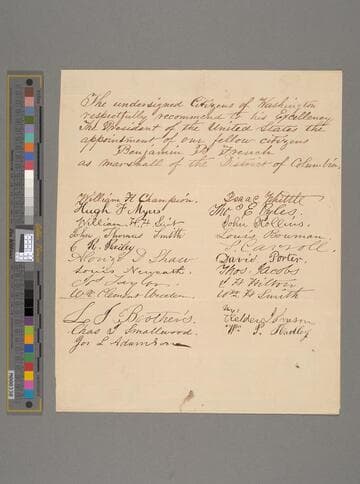 The undersigned Citizens of Washington
respectfully recommend to his Excellency
The President of the United States the
appointment of our fellow citizens
Benjamin B. French
as marshall of the District of Columbia.
William H Champion.
Hugh F Myers
William H. H.
John Thomas Smith
C. H.
Alonzo J Shaw
Louis
Taylor
Wm Clement
L. J. Brothers.
Chas J Smallwood.
Jos L Adamson
Isaac Whittle
E. Pyles.
John Collins.
Louis Bowman
Carroll.
David Porter.
Thos. Jacobs
Wm H Smith
Wm